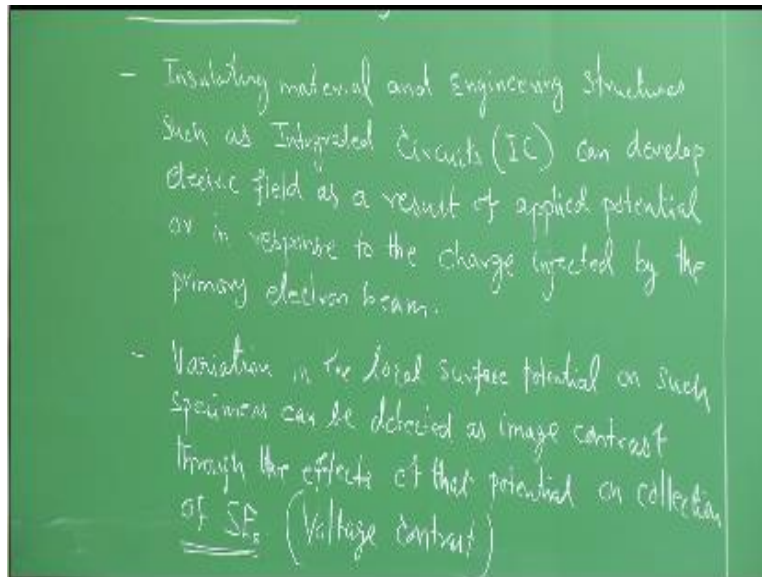 - Insulating material and Engineering structures
such as Integrated Circuits (IC) can develop
electric field as a result of applied potential
or in response to the charge injected by the
primary electron beam.
- Variation in the local surface potential on such
specimens can be detected as image contrast
through the effects of that potential on collection
of SEs (Voltage Contrast)